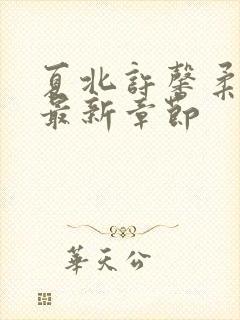 夏北許馨柔
最新章節
華天公